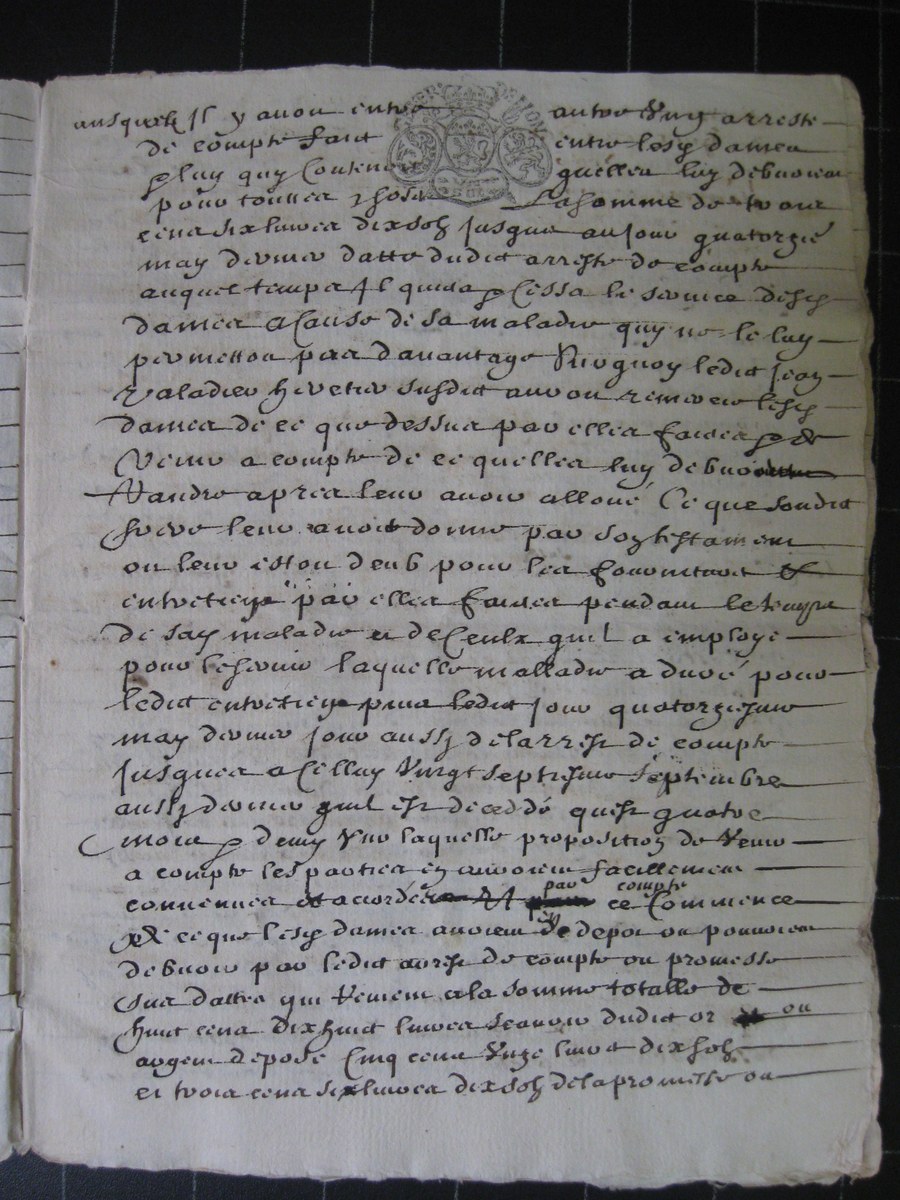 ausquels Il y auoit entre autre Ung arreste
de compte fait entre lesd dames
& luy quy Contenoit quelles luy debuoient
pour touttes choses La somme de trois
cens six liures dix solz jusques au jour quatorzie
may dernier datte dudict arreste de compte
auquel temps Il quicta & cessa le seruice desd
dames a Cause de sa maladie quy ne le luy
permettoit pas dauantage Surquoy ledict jean
Valadier heretier susdict auroit remercie lesd
dames de ce que dessus par elles faictes & de
Venir a compte de ce quelles luy debuoient
Randre apres leur auoir alloué Ce que sondict
frere leur auoit donne par son testament
ou leur estoit deub pour les fournitures &
entretien par elles faictes pendant le temps
de sa maladie et de Ceulx quil a employe
pour le seruir laquelle malladie a duré pour
ledict entretien puis ledict jour quatorziesme
may dernier jour aussy de larrest de compte
jusques a Celluy Vingt septiesme septembre
aussy dernier quil est decedé quest quatre
mois & demy Sur laquelle proposition de Venir
a compte les parties en auroient facillement
conuenues et accordées par ce compte Commence
de ce que lesd dames auoient en depot ou pouuoient
debuoir par ledict arrest de compte ou promesse
sus dattes qui Vienent a la somme totalle de
huict cens dix huict liures scauoir dudict or ou
argent deposé Cinq cens Unze liures dix solz
et trois cens six liures dix solz de la promesse ou